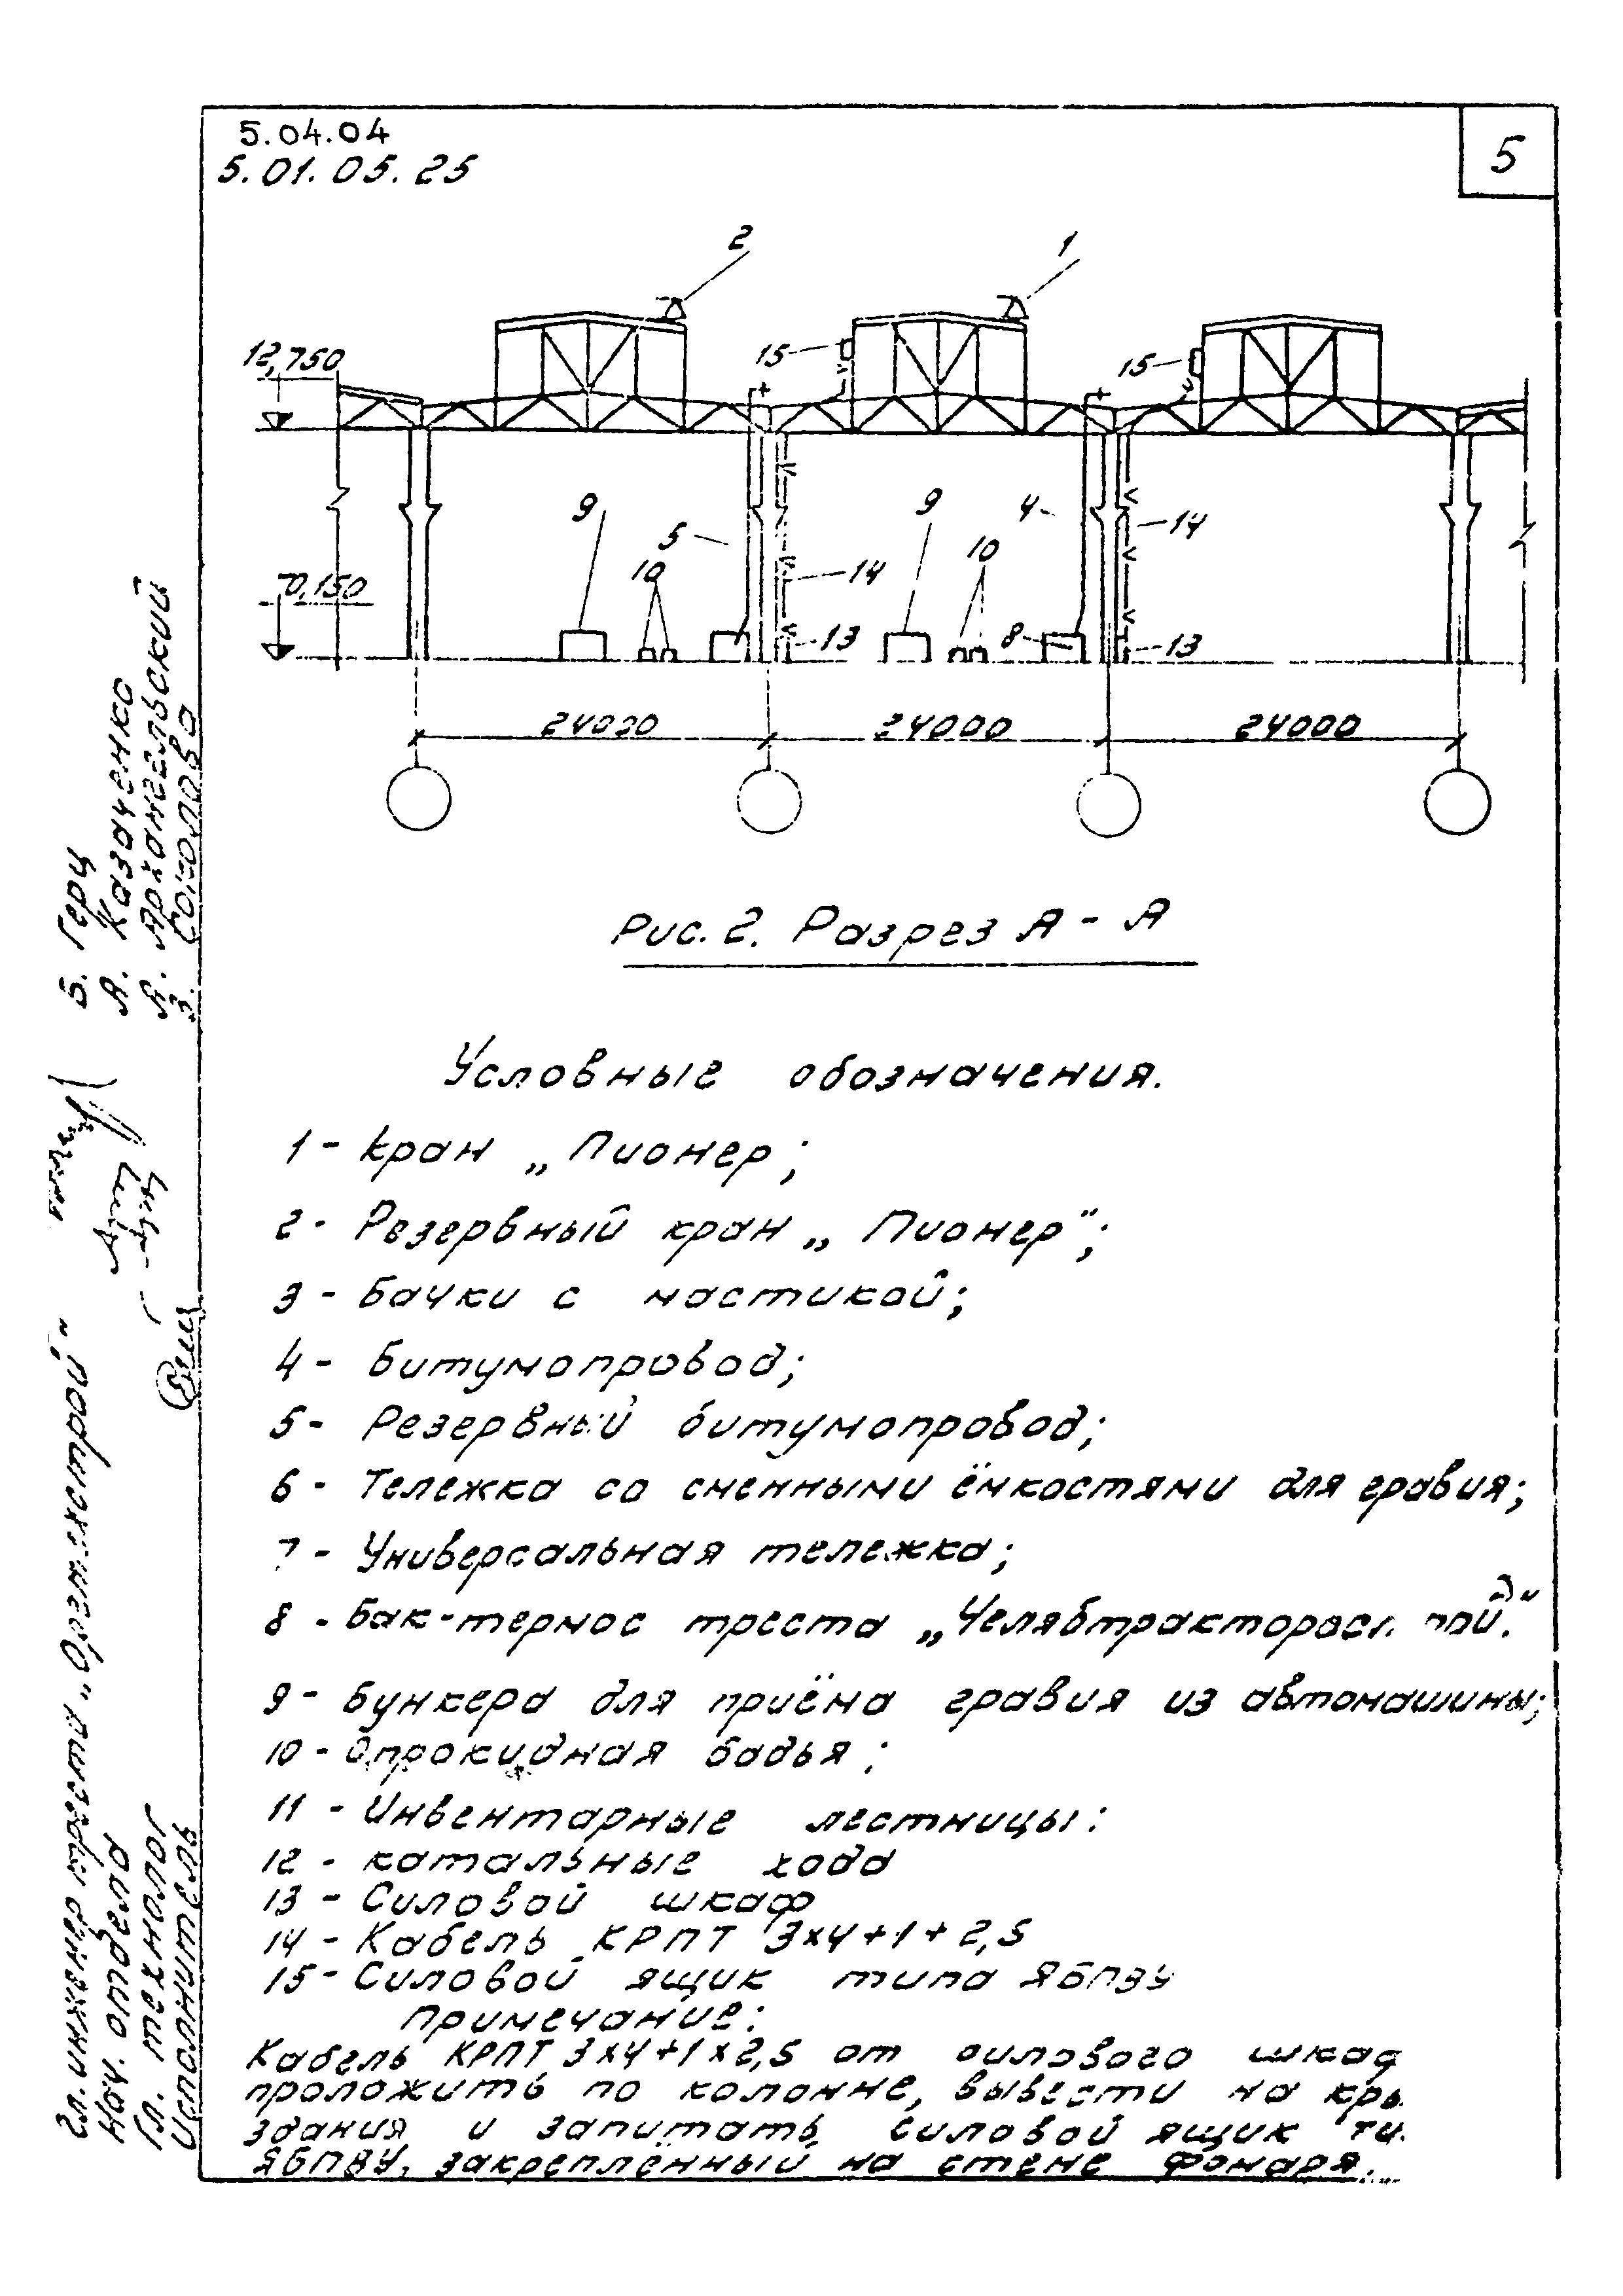 5.04.04
5.01.05.25
5
2
1
12,750
15
15
9
5
10
14
9
10
4
14
0,150
13
8
13
24000
24000
24000
Рис. 2. Разрез А - А
Условные обозначения.
1 - кран „Пионер;
2 - Резервный кран „Пионер";
3 - бачки с мастикой;
4 - битумопровод;
5 - Резервный битумопровод;
6 - Тележка со сменными ёмкостями для гравия;
7 - Универсальная тележка;
8 - бак-термос треста
9 - бункера для приёма гравия из автомашины;
10 - Опрокидная бадья;
11 - Инвентарные лестницы:
12 - катальные хода
13 - Силовой шкаф
14 - Кабель КРПТ 3x4+1+2,5
15 - Силовой ящик типа ЯБПВУ
примечание:
Кабель КРПТ 3x4+1x2,5 от силового
проложить по колонне, вывести на
здания и запитать силовой ящик
ЯБПВУ, закреплённый на стене фонаря.
Гл. инженер треста „Оргтехстрой" Б. Герц
Нач. отдела А. Казаченко
Гл. технолог А. Архангельский
Исполнитель З.